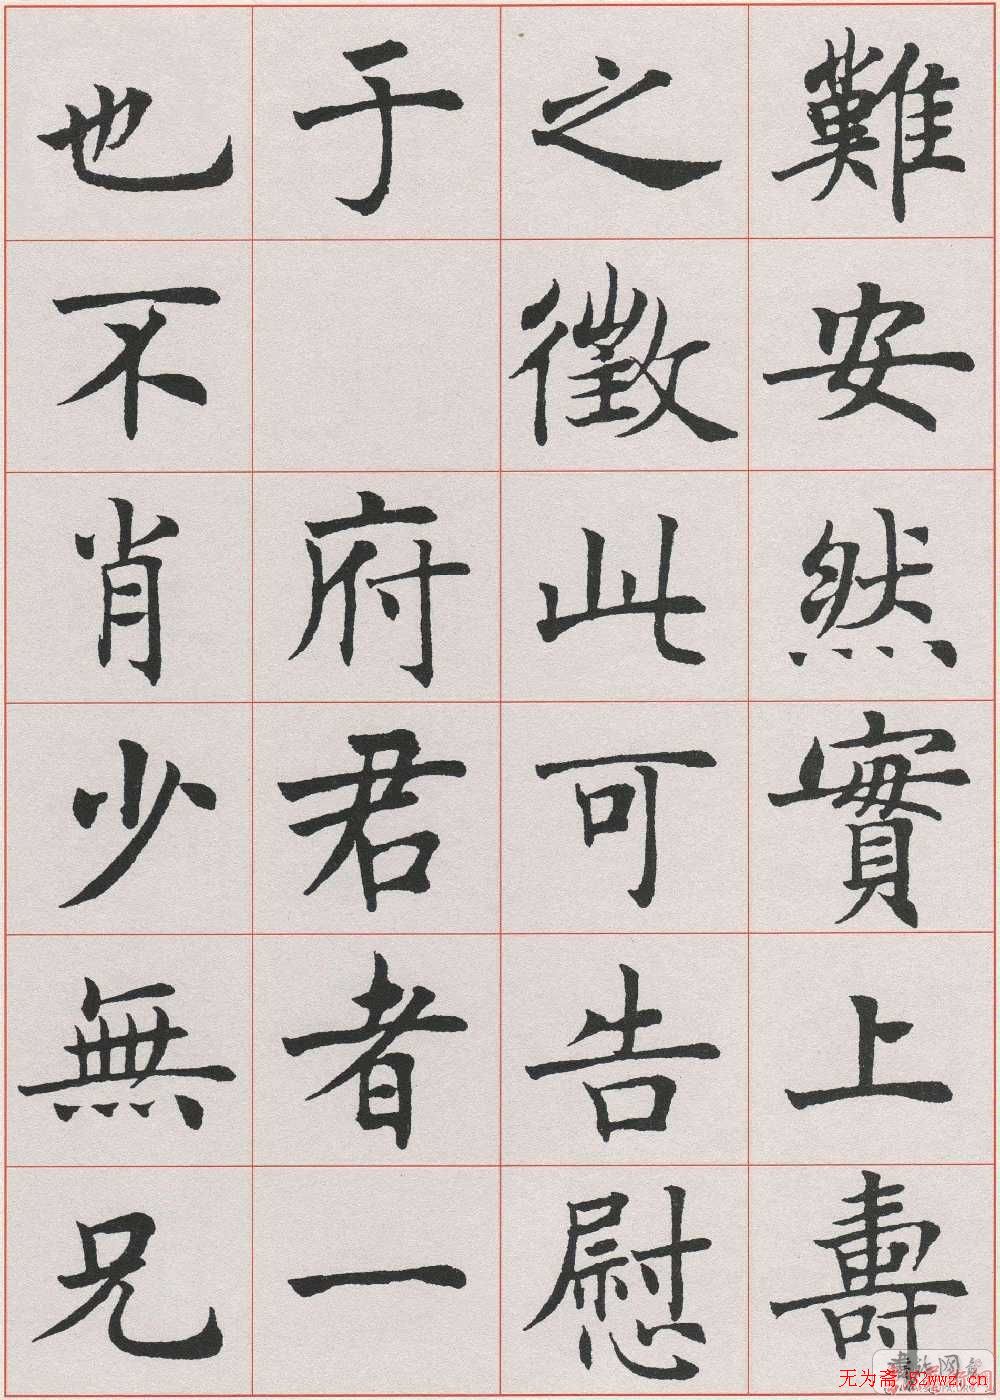 難安然實上壽
之徵此可告慰
于府君者一
也不肖少無兄
无为斋 52wwz.cn